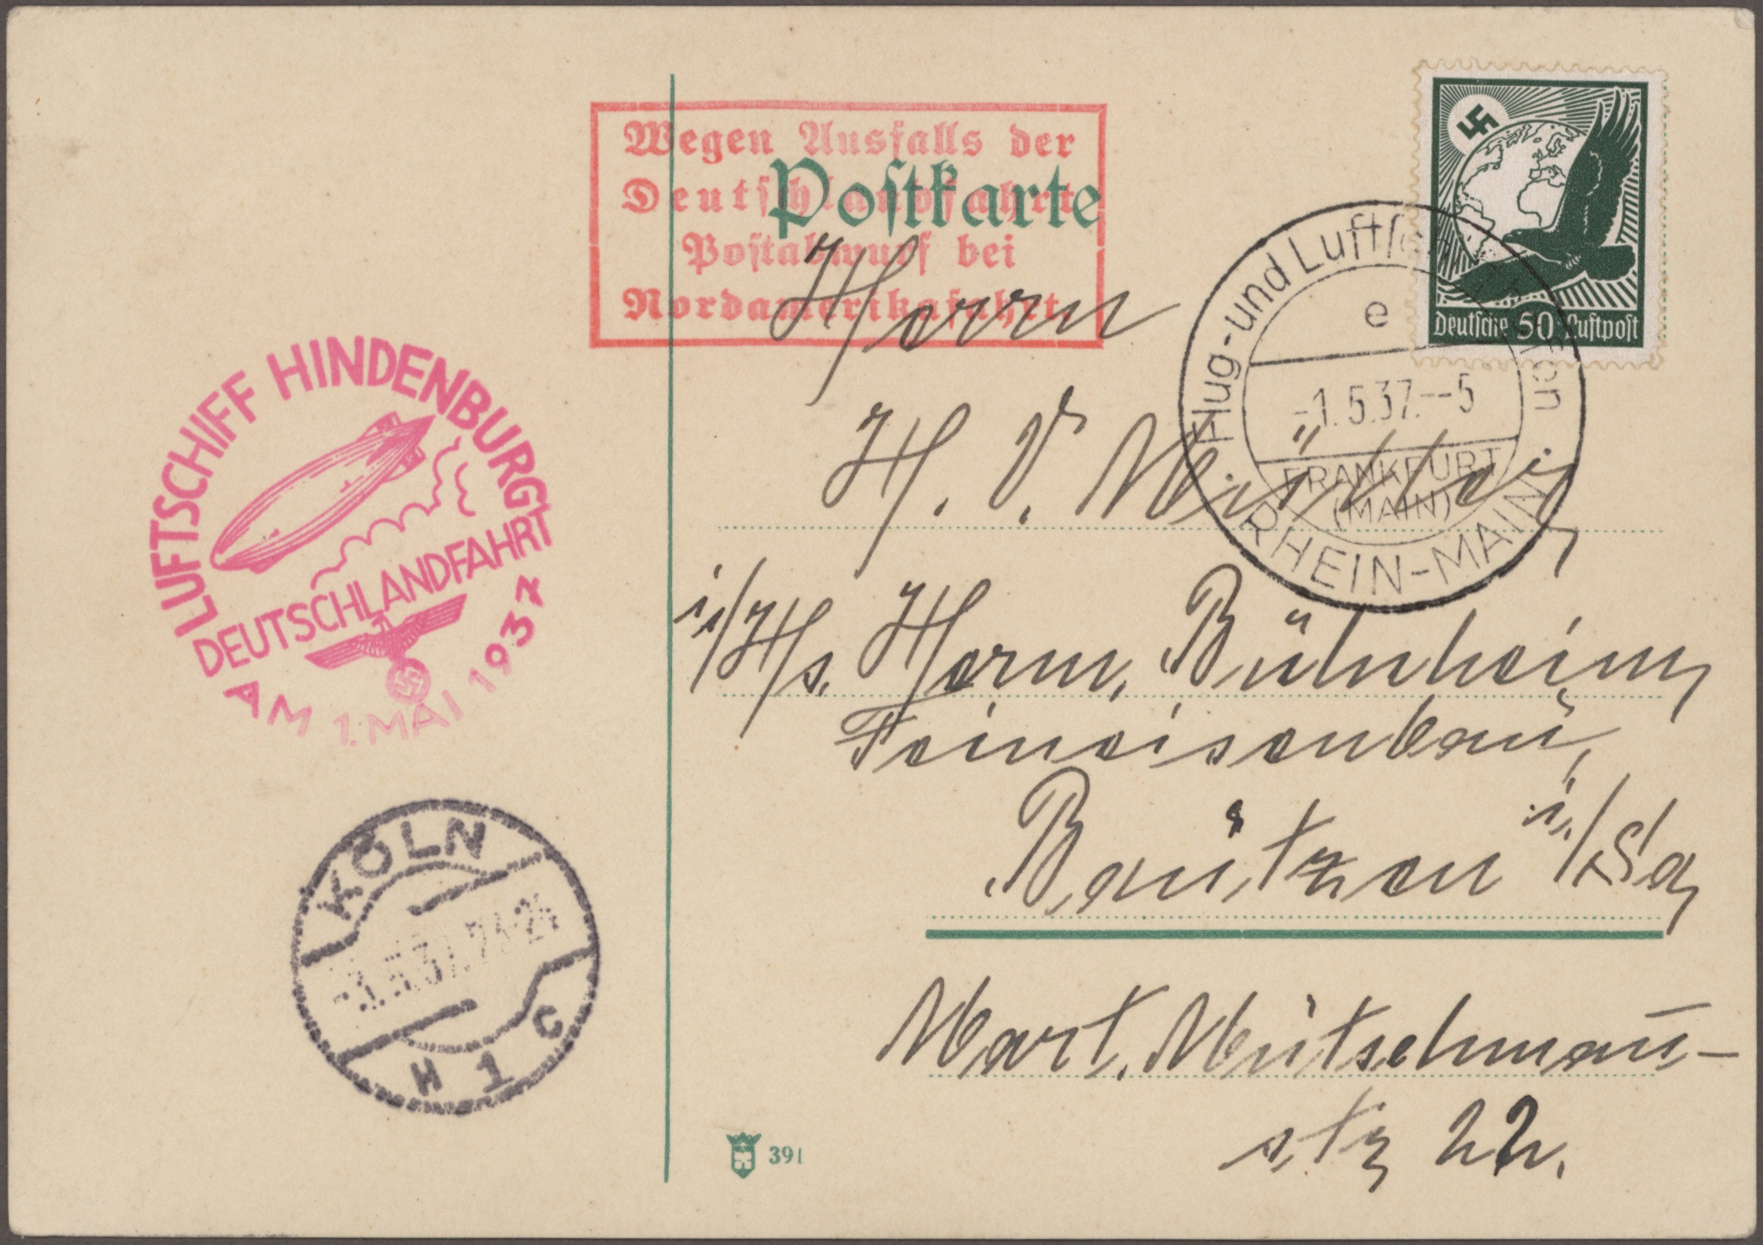 Wegen Ausfalls der
Deutschlandfahrt
Postabwurf bei
Nordamerikafahrt.
Postkarte
Deutsche 50 Luftpost
Flug-und Luftsch
e
-1.5.37.--5
FRANKFURT
(MAIN)
RHEIN-MAIN
LUFTSCHIFF HINDENBURG
DEUTSCHLANDFAHRT
AM 1. MAI 1937
Herrn
H. V.
i/Hs. Herm.
Feineisenbau,
Bautzen i./Sa
Mart. Mutschmann-
str 22.
KÖLN
-3.5.37.23-24
H 1 C
391